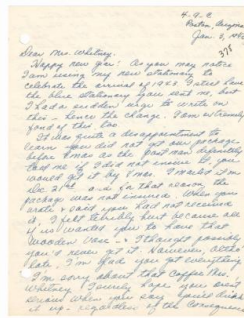 Jan. 5, 1943
Dear Mrs. Whitney,
Happy new Year! As you may notice
I am using my new stationery to
celebrate the arrival of 1943.
the blue stationery you sent me, but
I had a sudden urge to write on
this - hence the change. I am extremely
fond of this too.
It was quite a disappointment to
learn you did not get our package
before Xmas as the postman definitely
told me if I did not insure it, you
would get it by Xmas. I mailed it on
Dec. 21st and for that reason the
package was not insured. When you
wrote & said you had not received
it, I felt terribly hurt because all
of us wanted you to have that
wooden vase - & I thought possibly
you'd never get it. However, altho'
late I'm glad you got everything.
I'm sorry about that
Whitney I surely hope you aren't
it up - regardless of the consequences